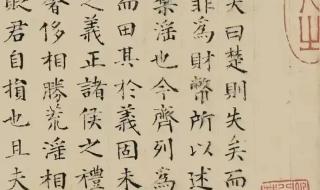 曰楚則失矣而
非為財幣所以述
禁淫也今齊列為
而田其於義固未
之義正諸侯之禮
奢侈相勝荒淫相
君自損也且夫